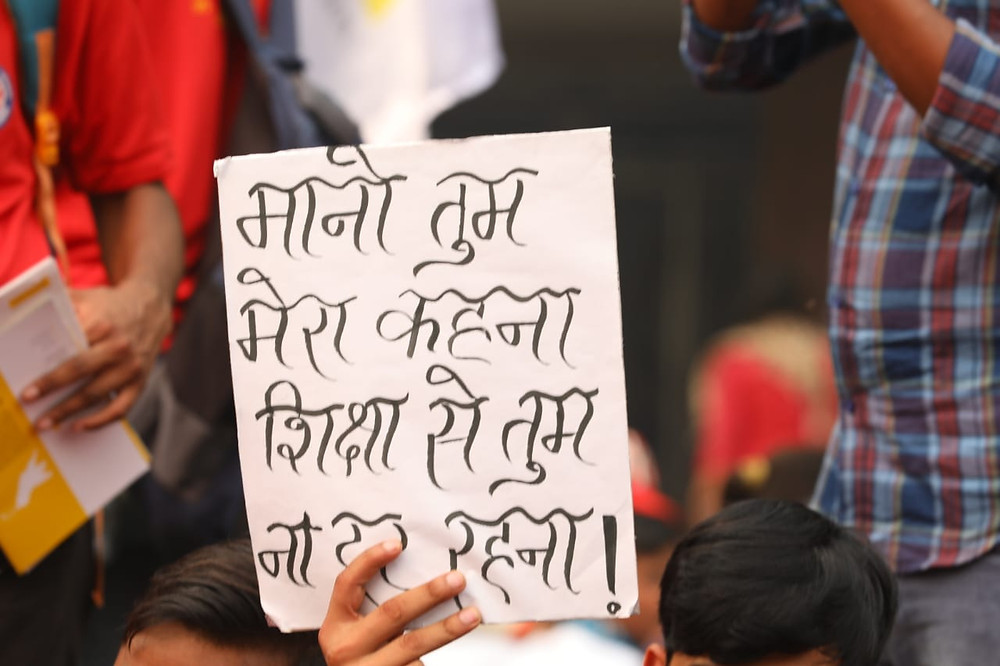 मानो तुम
मेरा कहना
शिक्षा से तुम
ना रहना!